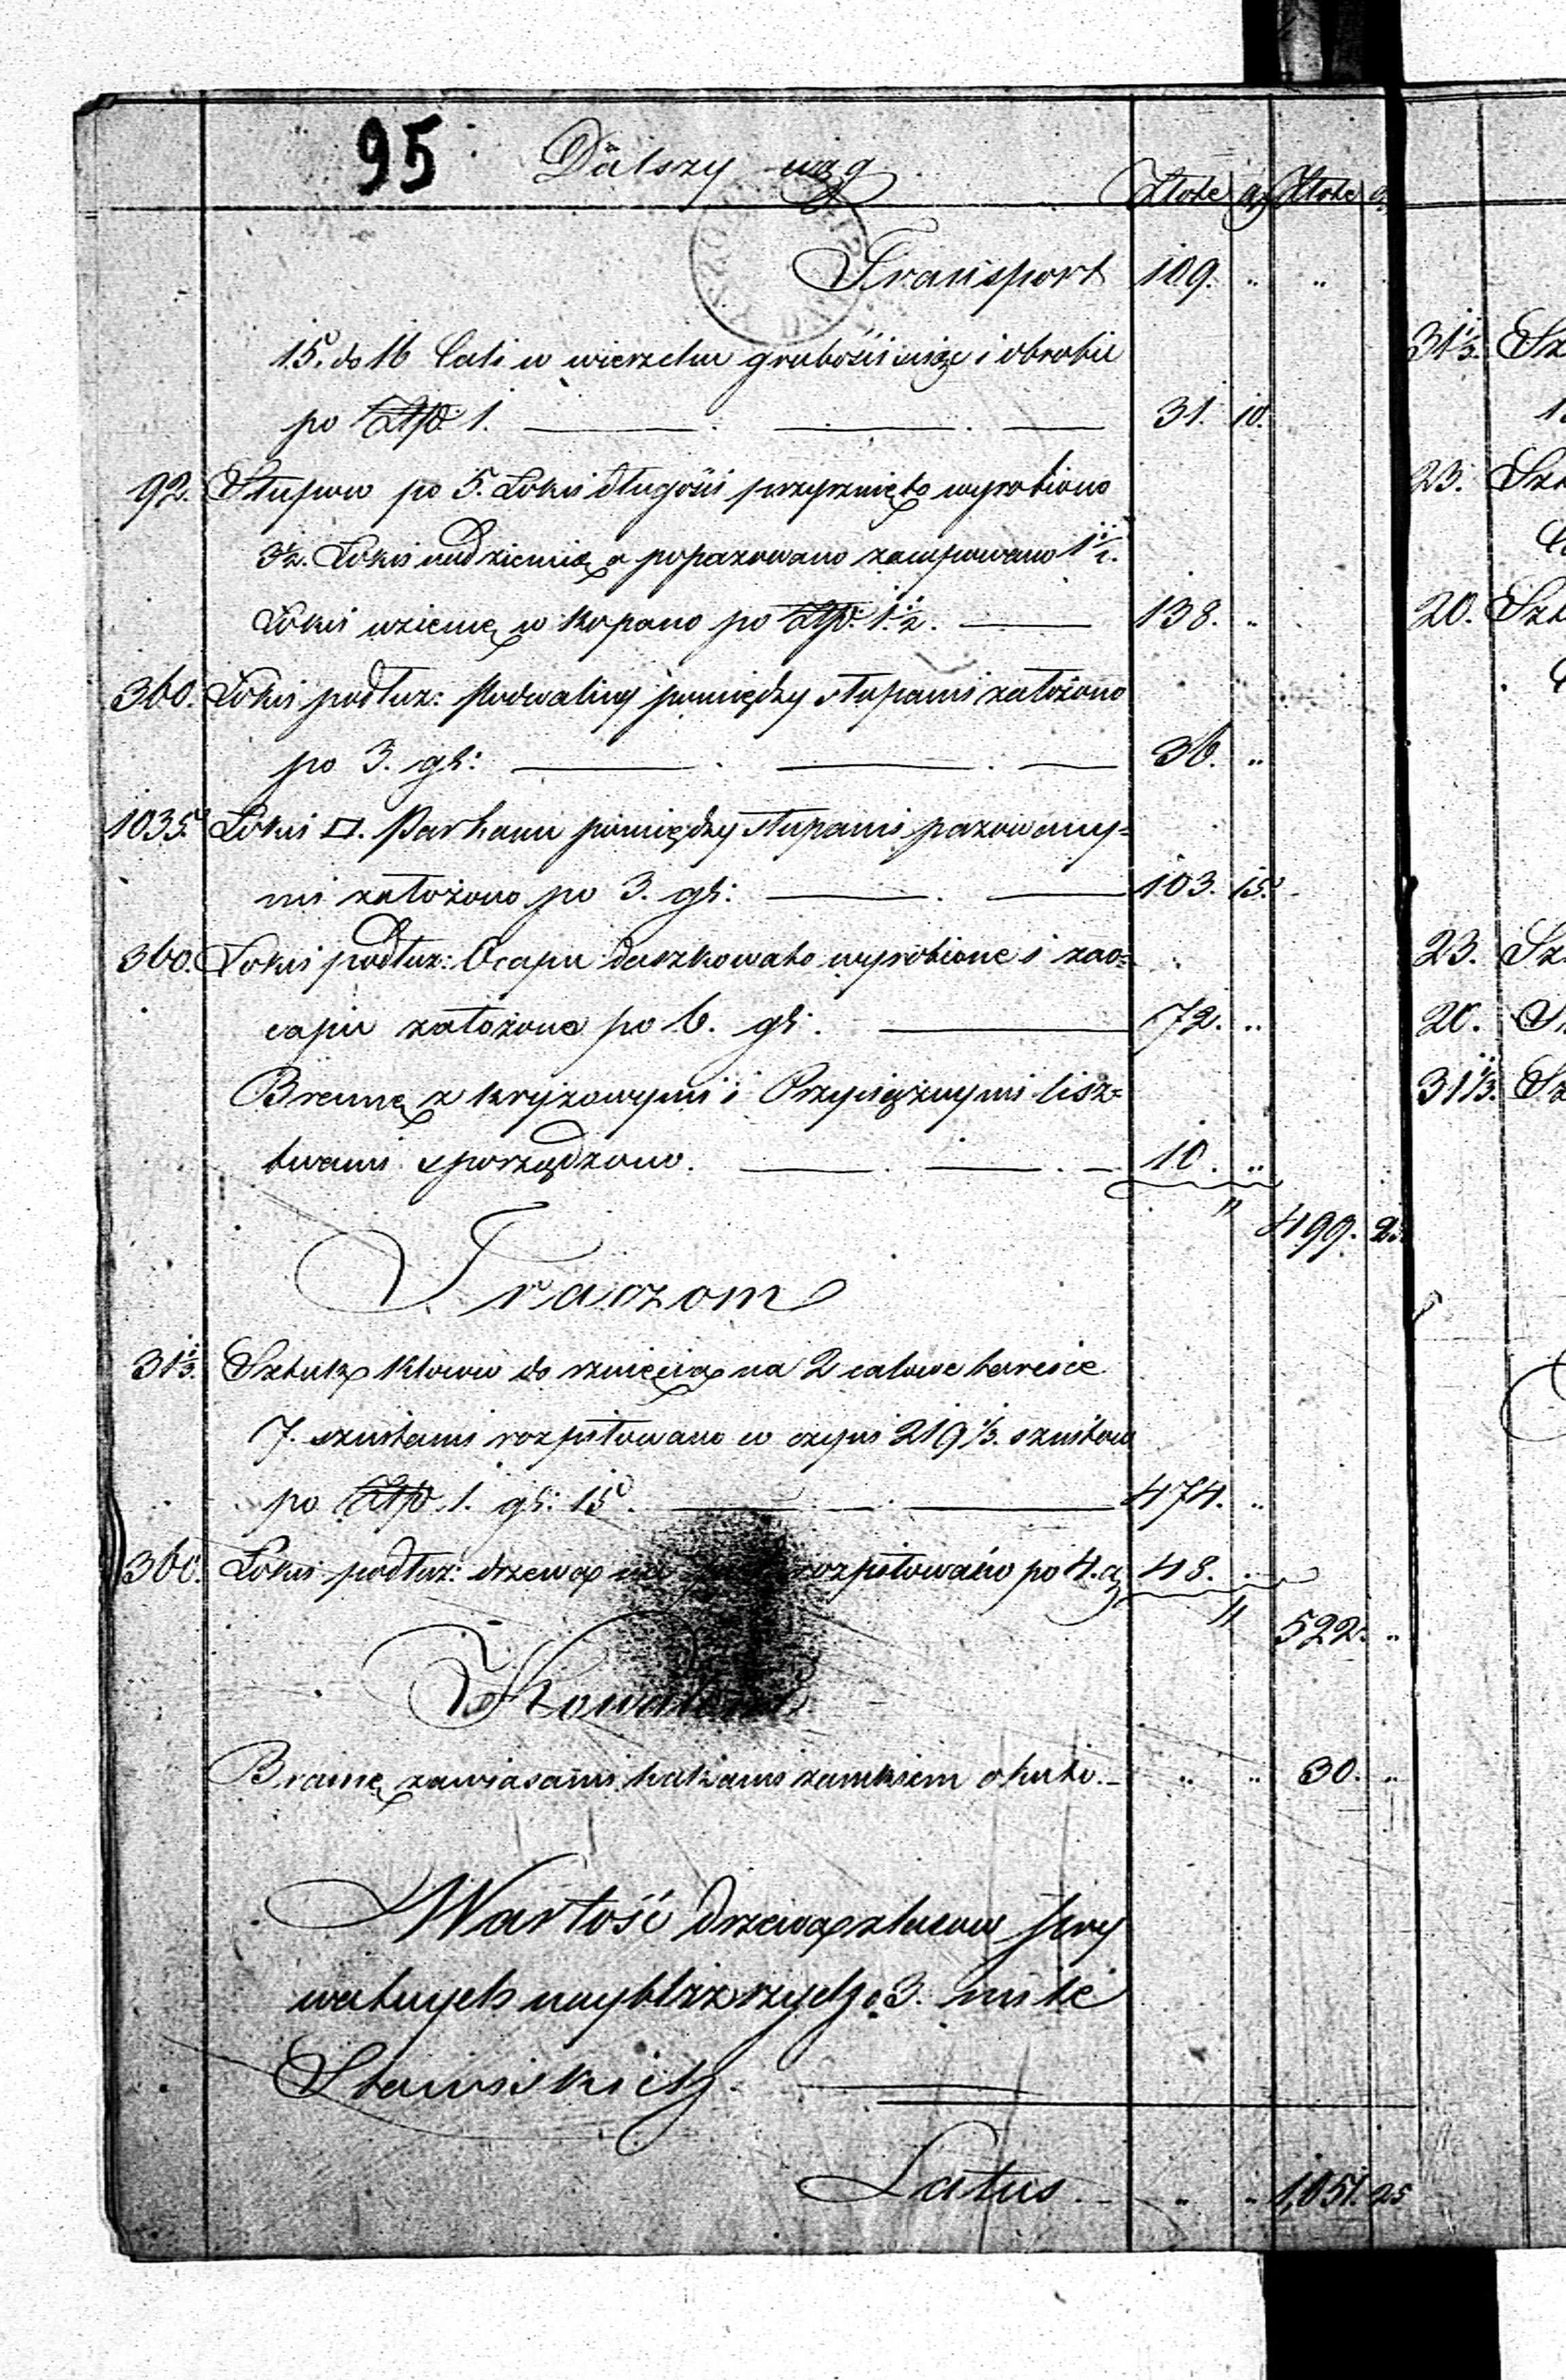 95 Dalszy ciąg
Złote gr Złote g
Transport 109. „ „
15. do 16 Cali w wierzchu grubości i obrobić
po Złp: 1. 31. 10.
92. Słupów po 5. Łokci długości przyrznięto wyrobiono
3½. Łokci nad ziemią a popazowano zaczopowano 1½.
Łokci w ziemię w kopano po Złp: 1½. 138. „
360. Łokci podłuż: Podwaliny pomiędzy słupami założono
po 3. gr: 36. „
1035. Łokci □. Parkanu pomiędzy słupami pazowany=
mi założono po 3. gr: 103. 15.
360. Łokci podłuż: Ocapu daszkowato wyrobione i zao=
capu założono po 6. gr. 72. „
Bramę z kryżowymi i Przyciężnymi lisz=
twami sporządzono. 10. „
„ 499. 25
Traczom
31⅓. Sztuk Klocow do rznięcia na 2 calowe tarcice
7. sznitami rozpiłowano w czyni 219⅓. sznitow
po Złp. 1. gr: 15. 474. „
360. Łokci podłuż: drzewa na rozpiłowano po 4. g 48. „
„ 522. „
Kowalowi
Bramę zawiasami hakami zamkiem okuto. „ „ 30. „
Wartość drzewa z lasow pry
watnych nayblizszych o 3. mile
Stawiskich
Latus „ „ 1,051. 25
31⅓. Sz
23. Sz
20. Szt
23. Sz
20. S
31⅓. Sz